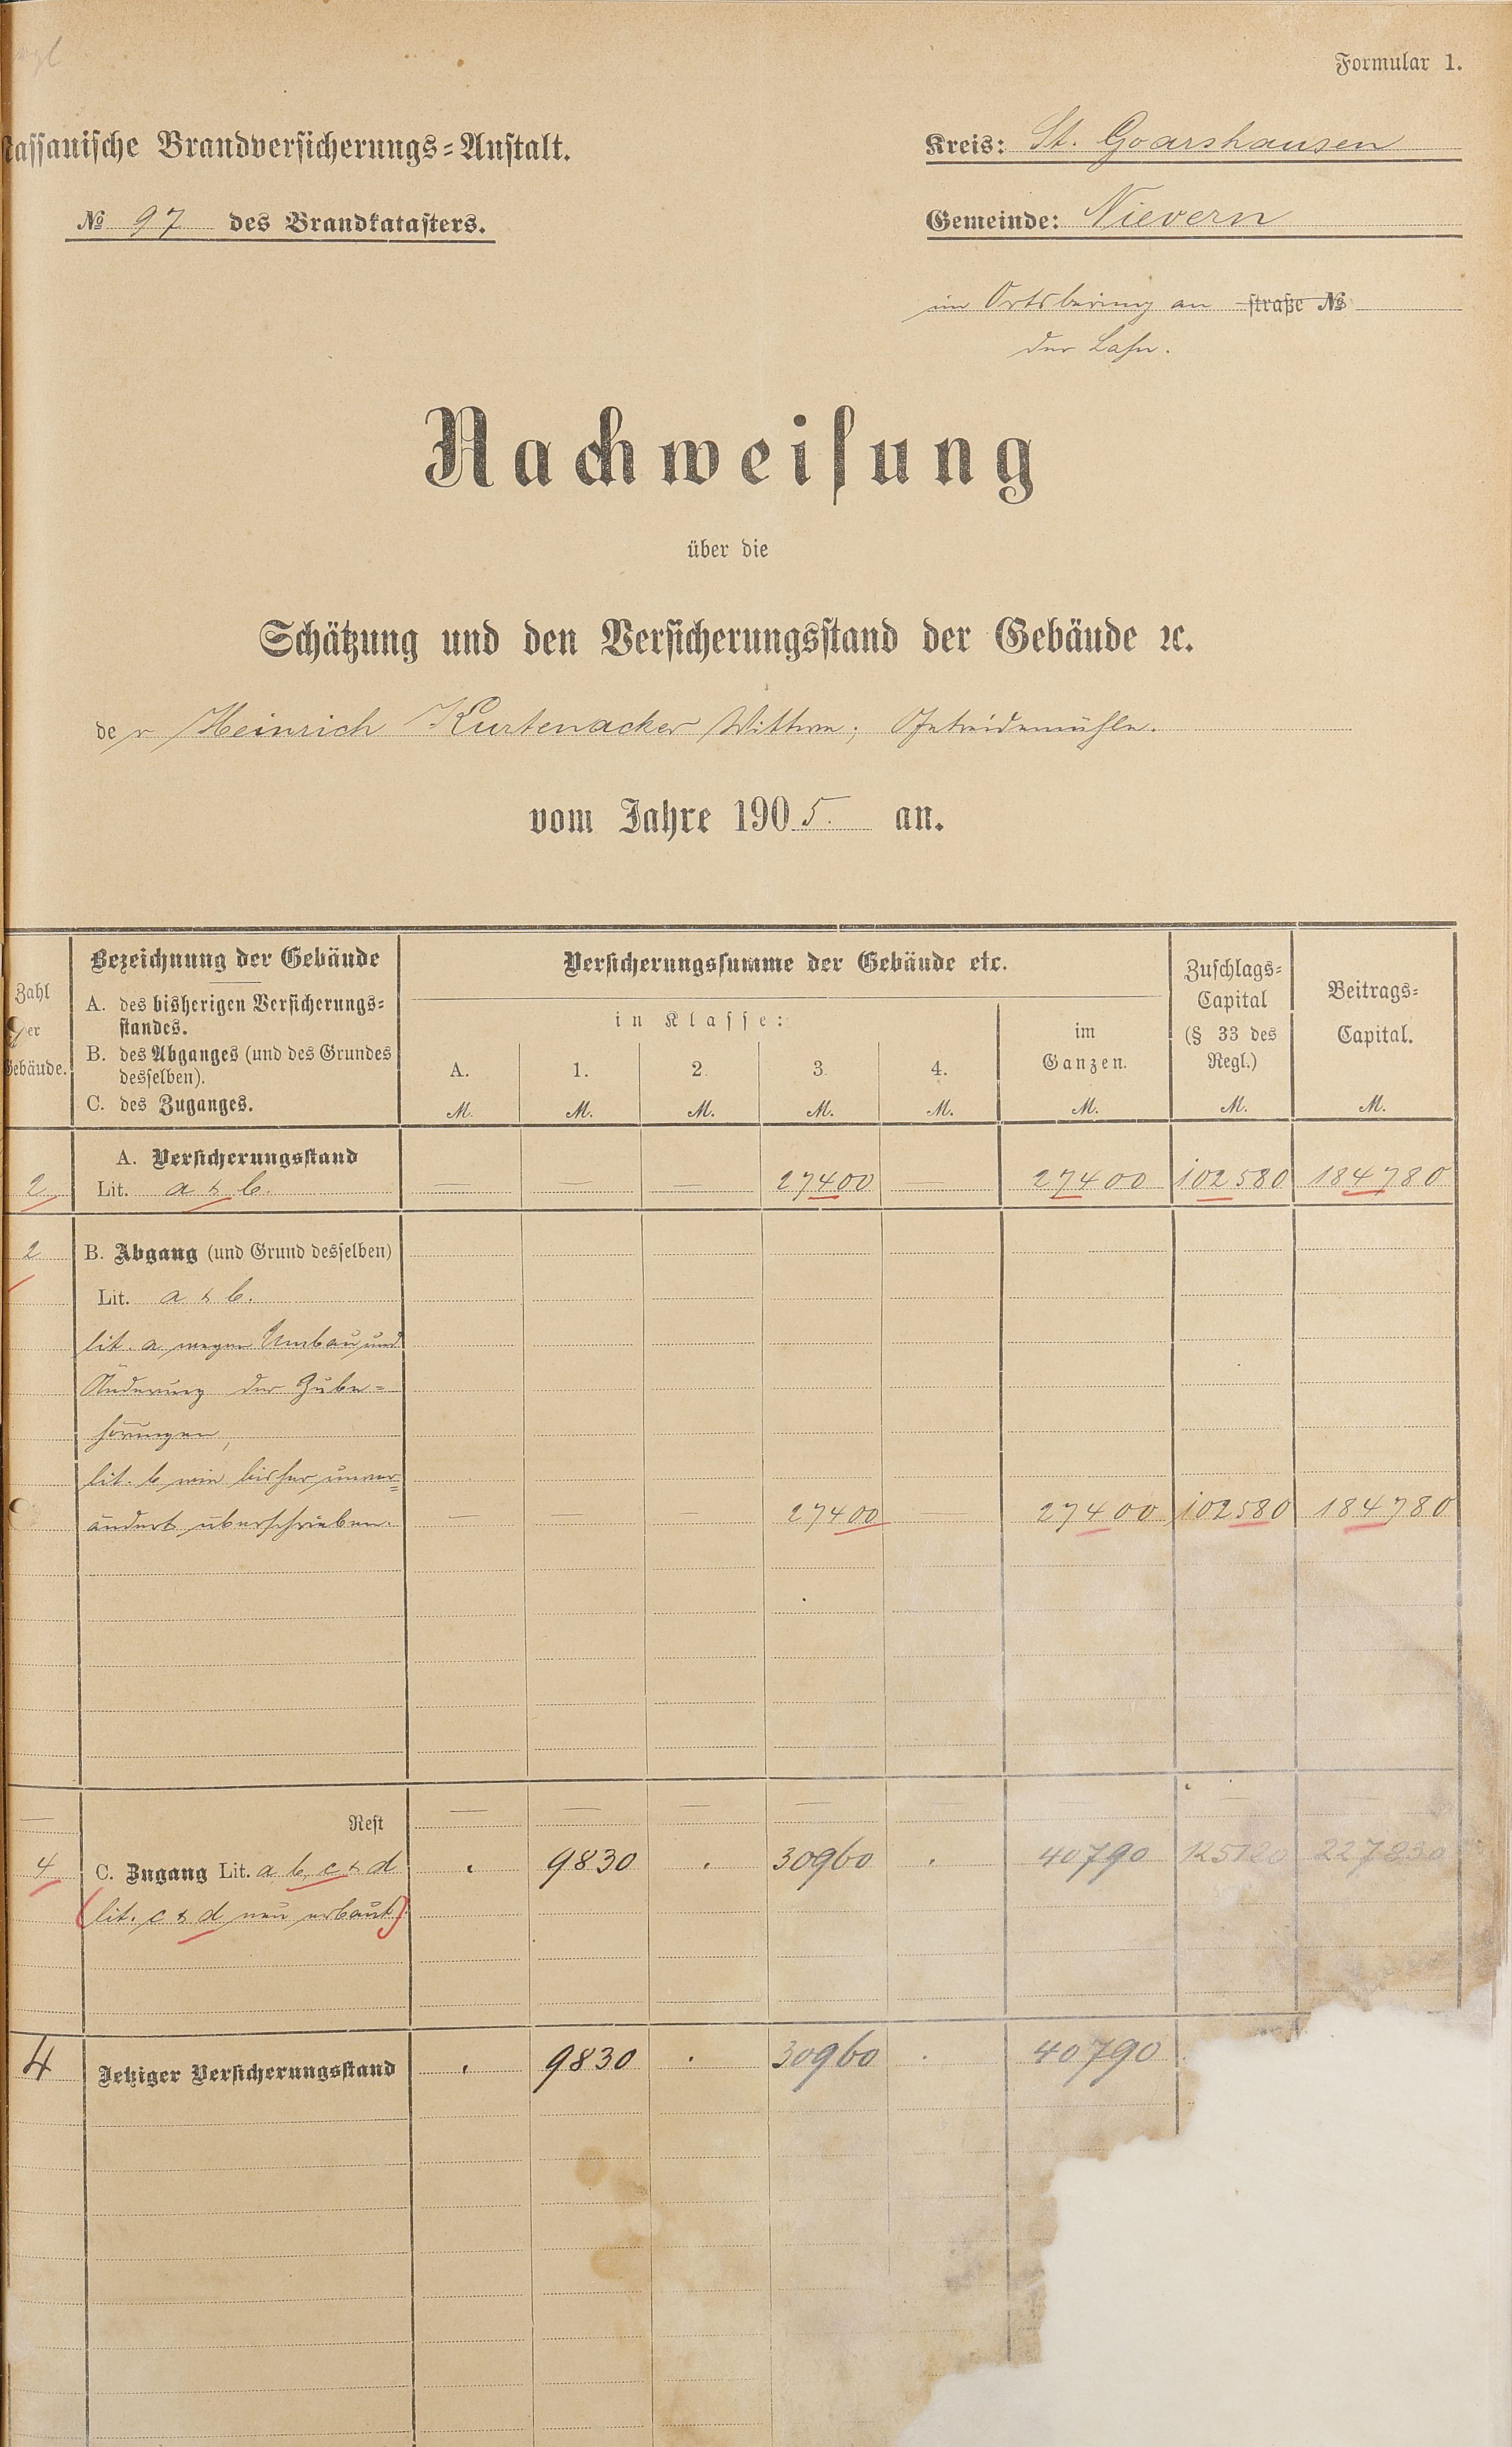 Formular 1.
Nassauische Brandversicherungs=Anstalt.
Kreis: St. Goarshausen
№ 97 des Brandkatasters.
Gemeinde: Nievern
im Ortsbering an straße №
der Lahn.
Nachweisung
über die
Schätzung und den Versicherungsstand der Gebäude ꝛc.
der Heinrich Kurtenacker Wittwe; Getreidemühle.
vom Jahre 1905. an.
Zahl der Gebäude.
Bezeichnung der Gebäude
A. des bisherigen Versicherungs=
standes.
B. des Abganges (und des Grundes
desselben).
C. des Zuganges.
Versicherungssumme der Gebäude etc.
in Klasse:
A. 1. 2. 3. 4.
im
Ganzen.
Zuschlags=
Capital
(§ 33 des
Regl.)
Beitrags=
Capital.
M. M. M. M. M. M. M. M.
A. Versicherungsstand
2 Lit. a & b. — — — 27400 — 27400 102580 184780
2 B. Abgang (und Grund desselben)
Lit. a & b.
lit. a wegen Umbau und
Änderung der Zube=
hörungen,
lit. b wie bisher unver=
ändert überschrieben. — — — 27400 — 27400 102580 184780
— Rest — — — — — — —
4 C. Zugang Lit. a b, c & d . 9830 . 30960 . 40790
(lit. c & d neu erbaut)
4 Jetziger Versicherungsstand . 9830 . 30960 . 40790